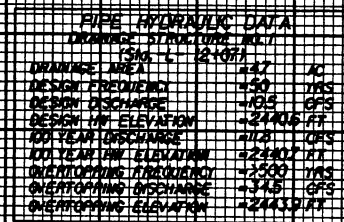 PIPE HYDRAULIC DATA
DRAINAGE STRUCTURE NO. 1
(Sta. L 12+07)
DRAINAGE AREA = 4.7 AC
DESIGN FREQUENCY = 50 YRS
DESIGN DISCHARGE = 10.5 CFS
DESIGN HW ELEVATION = 2440.6 FT
100 YEAR DISCHARGE = 11.8 CFS
100 YEAR HW ELEVATION = 2440.7 FT
OVERTOPPING FREQUENCY = >500 YRS
OVERTOPPING DISCHARGE = 34.5 CFS
OVERTOPPING ELEVATION = 2443.9 FT